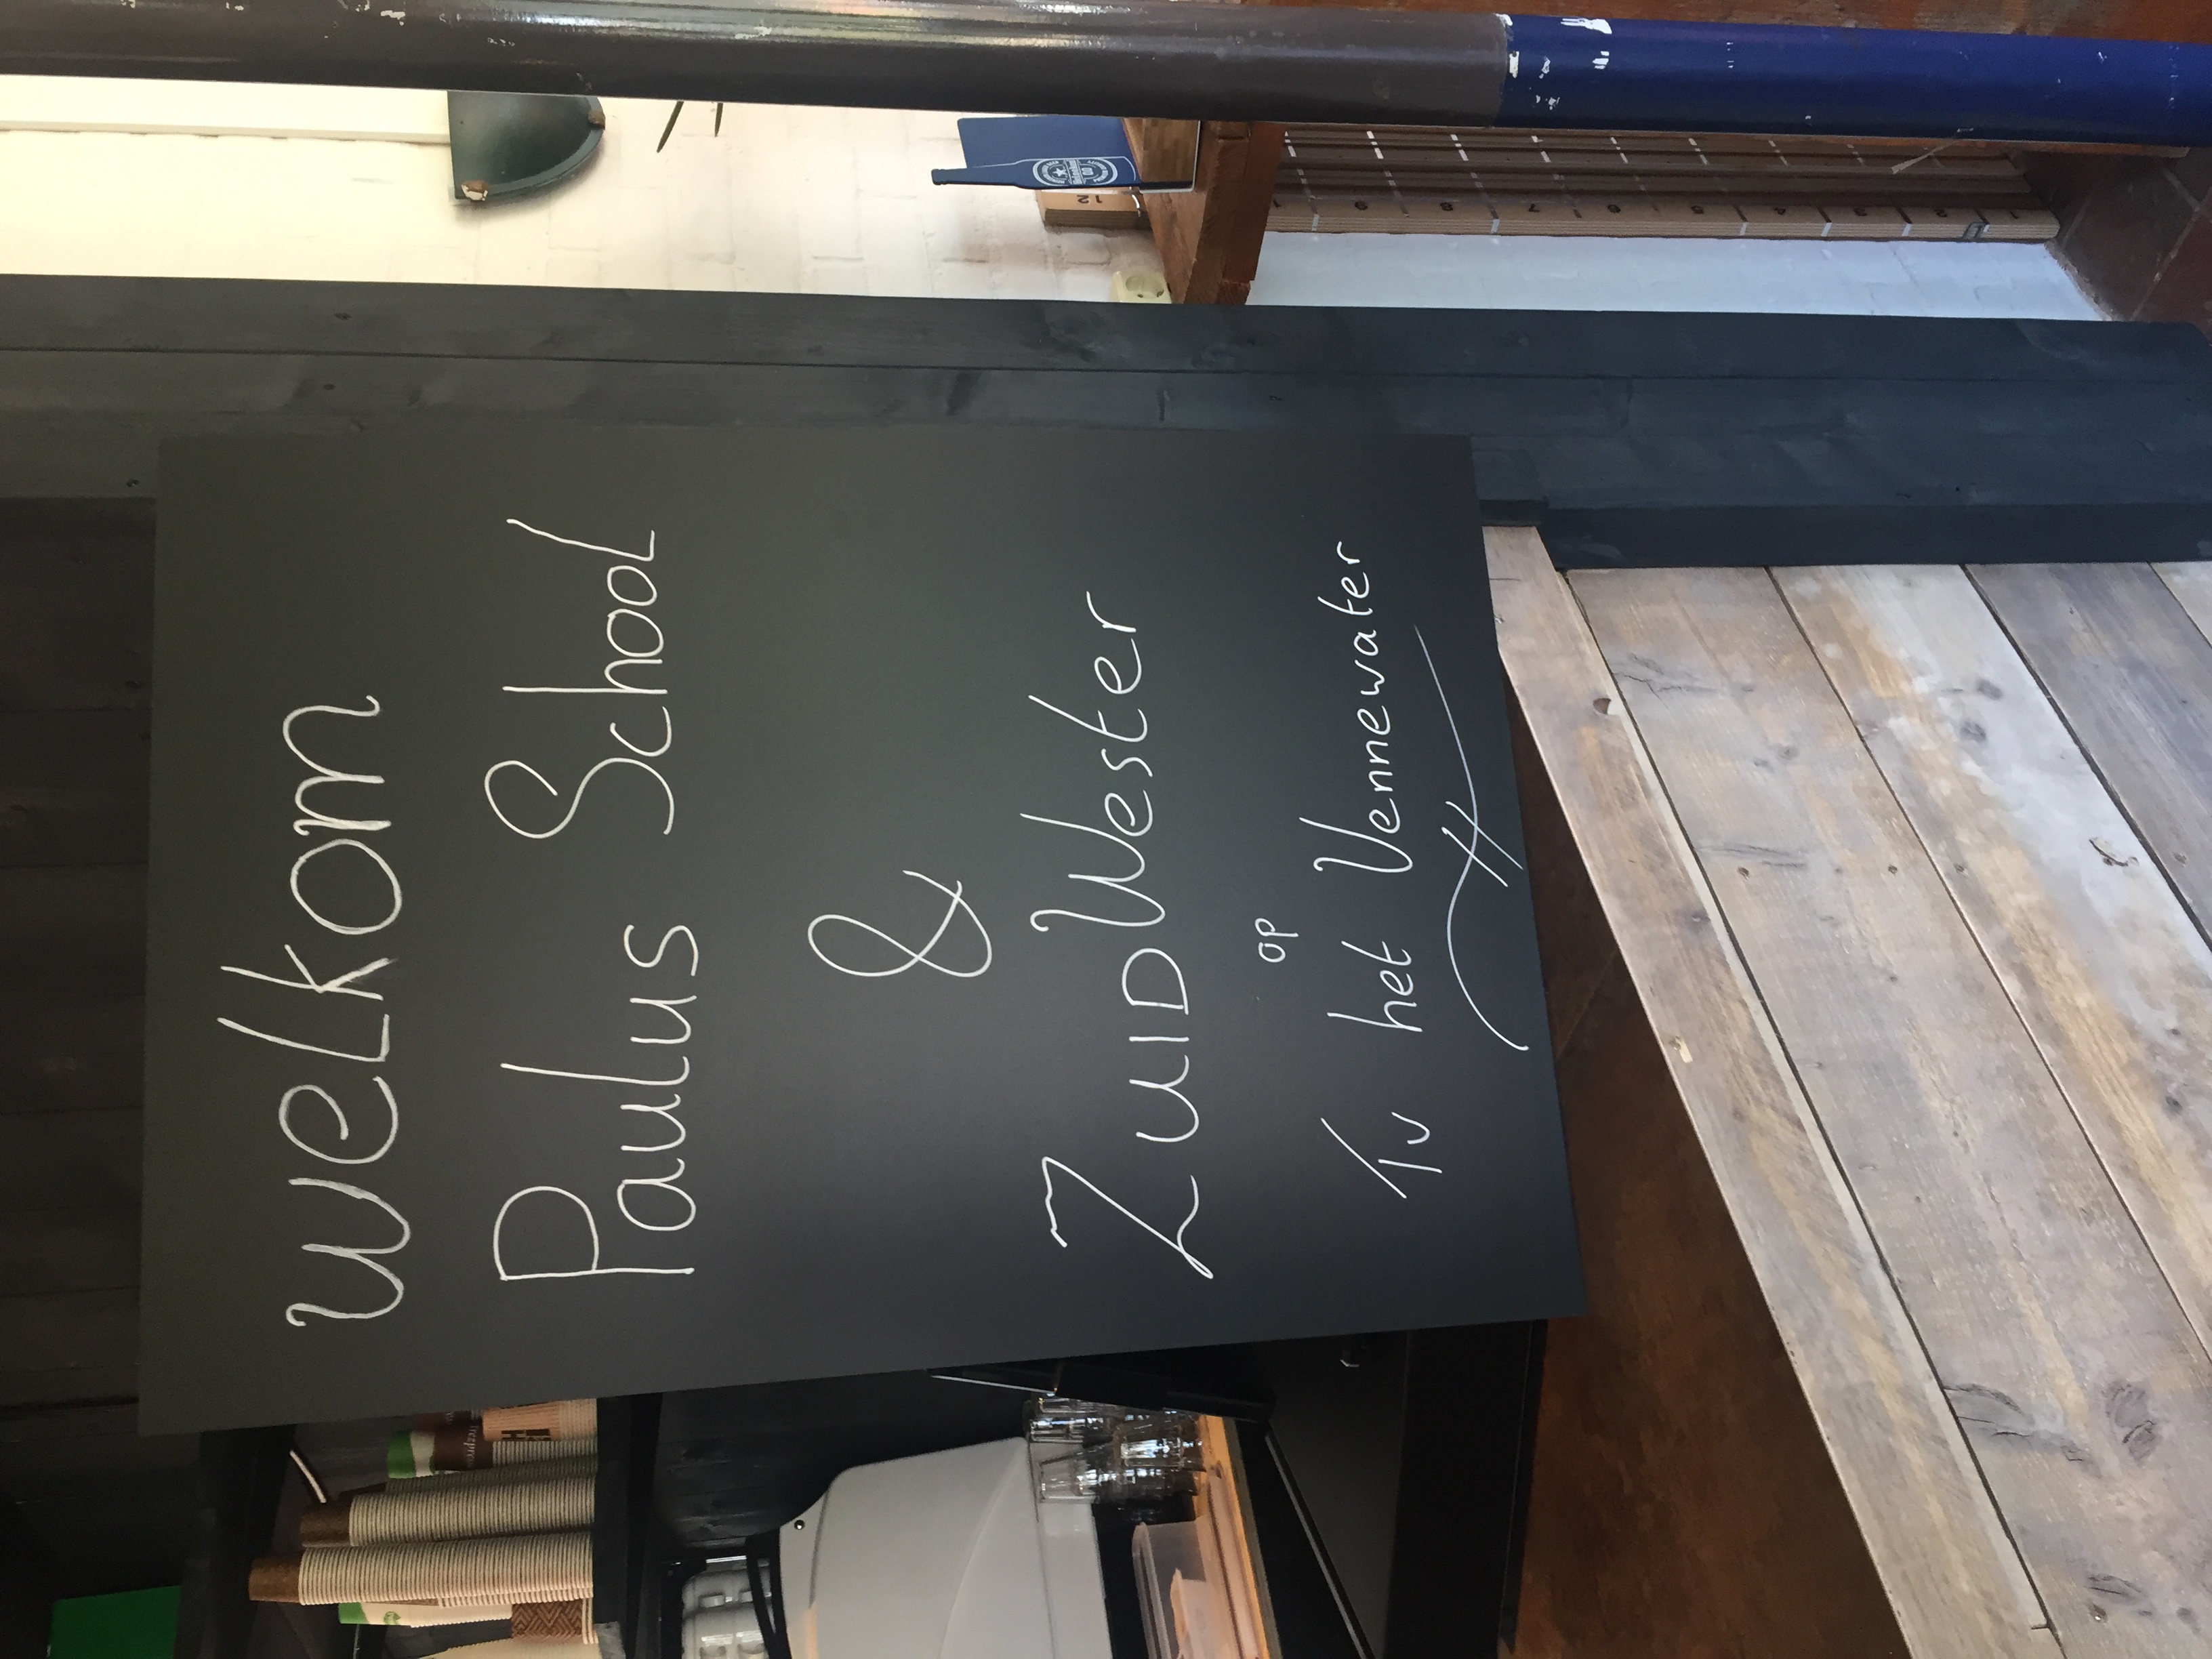 welkom
Paulus School
&
ZuiD Wester
op
Tv het Vennewater
12
9
8
7
6
5
4
3
2
1